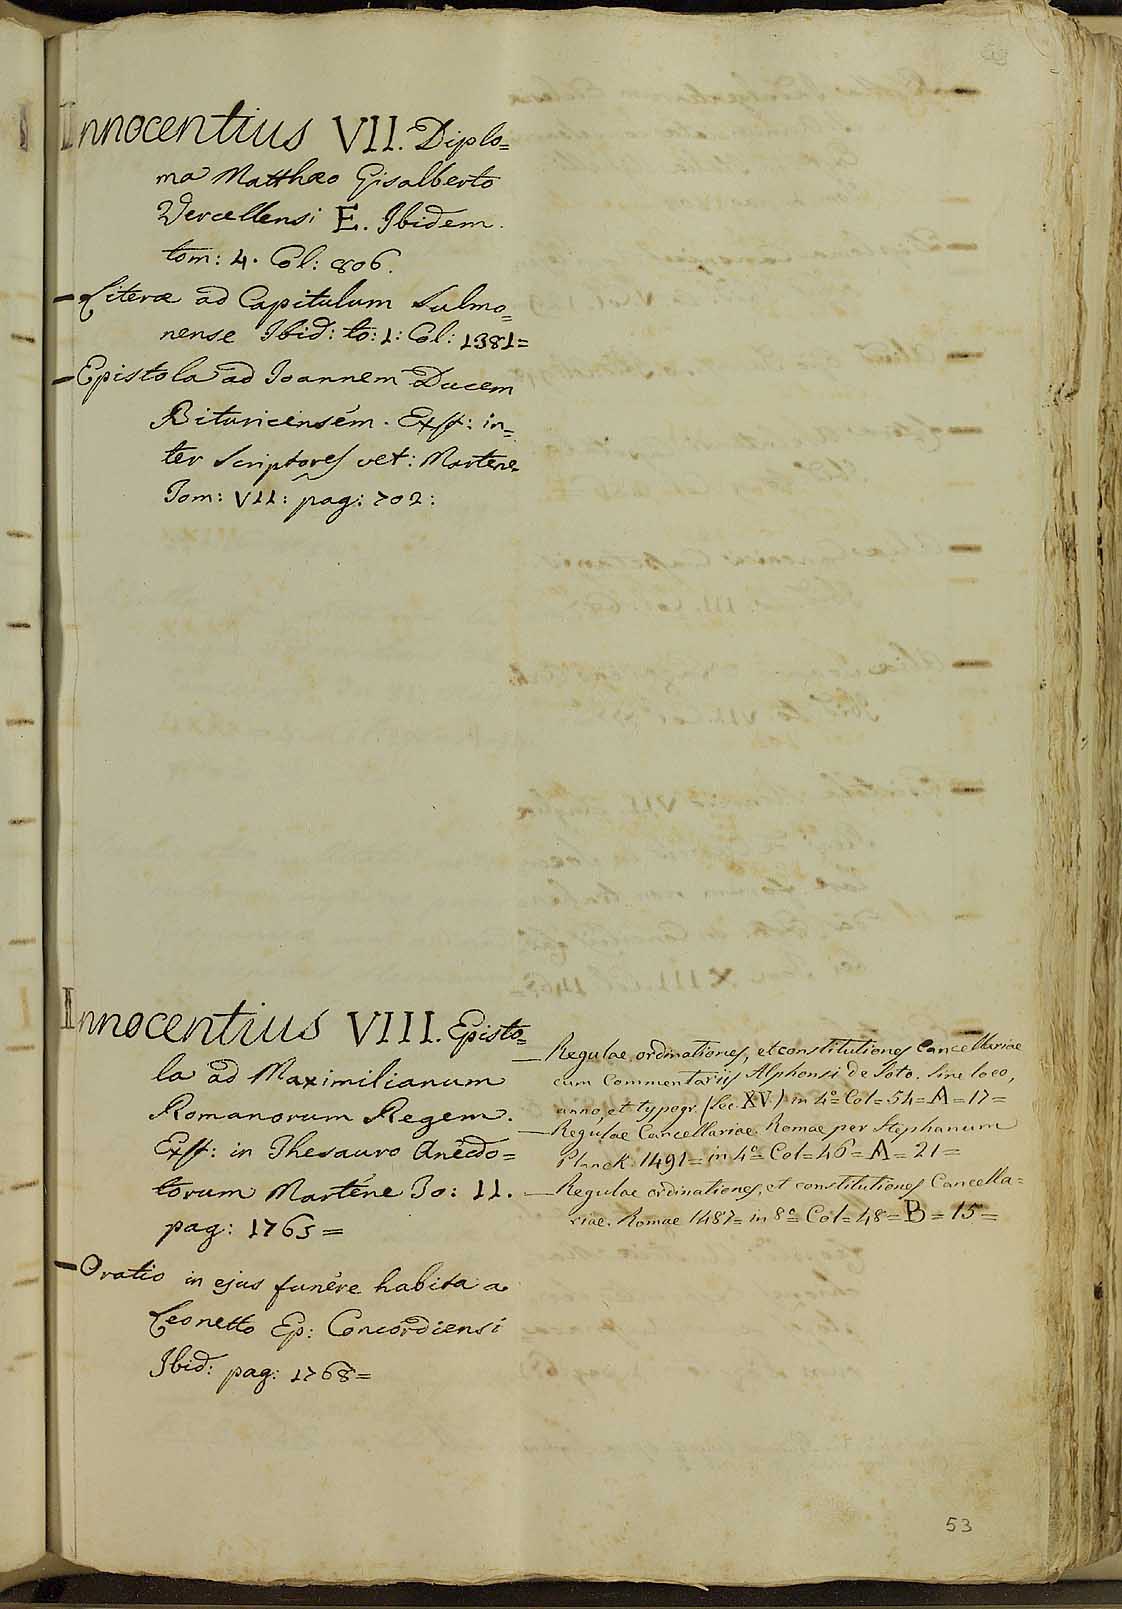 Innocentius VII. Diplo=
ma Matthæo Gisalberto
Vercellensi E. Ibidem.
tom: 4. Col: 806.
– Literæ ad Capitulum Sulmo=
nense Ibid: to: 1: Col: 1381=
– Epistola ad Joannem Ducem
Bituricensem. Exst: in=
ter Scriptores vet: Martene
Tom: VII: pag: 702:
Innocentius VIII. Episto=
la ad Maximilianum
Romanorum Regem.
Exst: in Thesauro Anecdo=
torum Martene To: II.
pag: 1765=
– Oratio in ejus funere habita a
Leonetto Ep: Concordiensi
Ibid: pag: 1768=
– Regulae, ordinationes, et constitutiones Cancellariae
cum Commentariis Alphonsi de Soto. Sine loco,
anno, et typogr. (Sec. XV.) in 4º Col=54=A=17=
– Regulae Cancellariae. Romae per Stephanum
Planck. 1491= in 4º= Col=46=A=21=
– Regulae ordinationes, et constitutiones Cancella=
riae. Romae 1487= in 8º= Col=48=B=15=
53